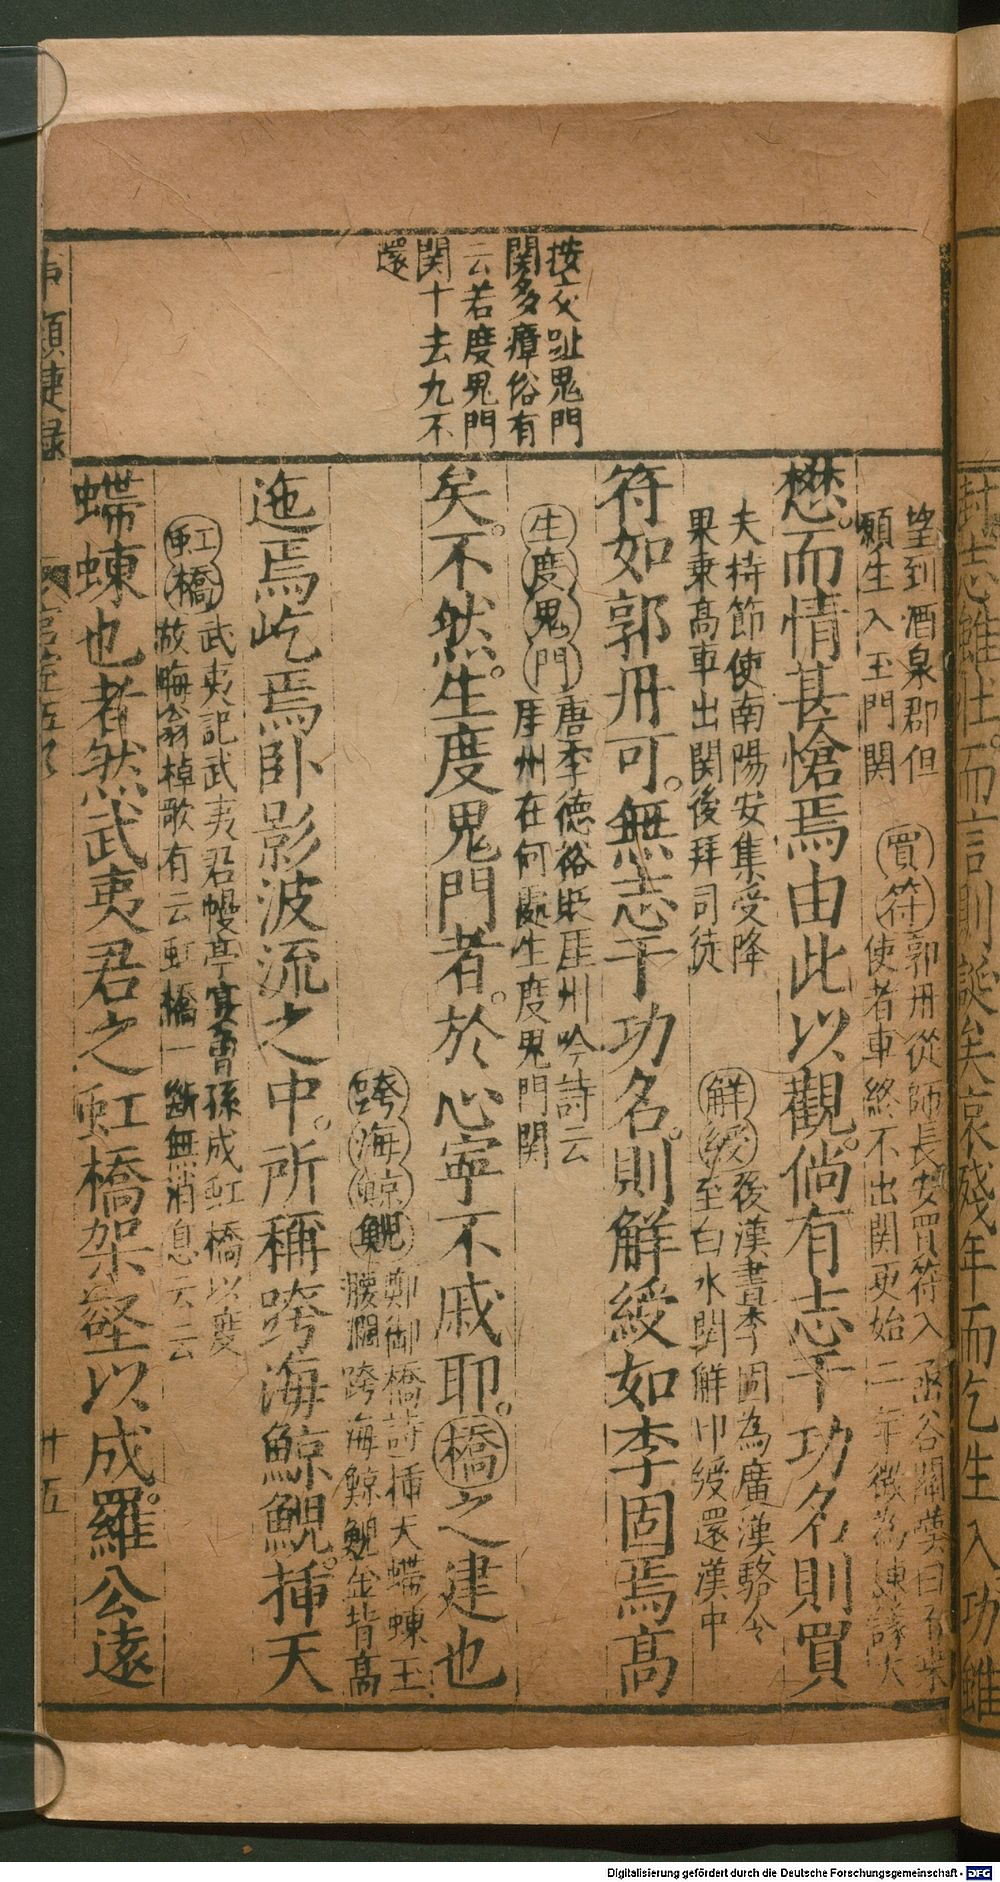 按交趾鬼門
関多瘴俗有
云若度鬼門
関十去九不
還
望到酒泉郡但
願生入玉門関
買符
郭丹從師長安買符入函谷關嘆曰不乗
使者車終不出関更始二年徴為諫議大
懋。而情甚愴焉由此以觀。倘有志于功名則買
夫持節使南陽安集受降
果乗高車出関後拜司徒
解綬
後漢書李固為廣漢雒令
至白水関解印綬還漢中
符如郭丹可。無志于功名。則解綬如李固焉高
生度鬼門
唐李德裕貶崖州吟詩云
崖州在何處生度鬼門関
矣。不然。生度鬼門者。於心寧不戚耶。橋之建也
跨海鯨鯢
鄭御橋詩揷天蝃蝀玉
腰濶跨海鯨鯢金背高
迤焉屹焉卧影波流之中。所稱跨海鯨鯢。揷天
虹橋
武夷記武夷君幔亭宴曾孫成虹橋以度
故晦翁棹歌有云虹橋一斷無消息云云
蝃蝀也者然武夷君之虹橋架壑以成。羅公遠
事類捷録
宮室五
廿五
封志雖壯。而言則誕矣哀殘年而乞生入功雖